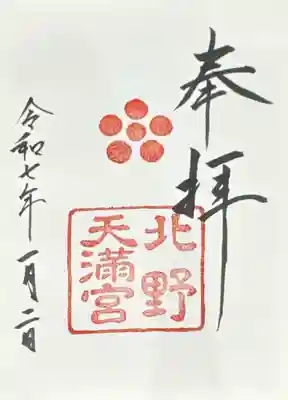 奉拝
北野
天満宮
令和七年一月二日